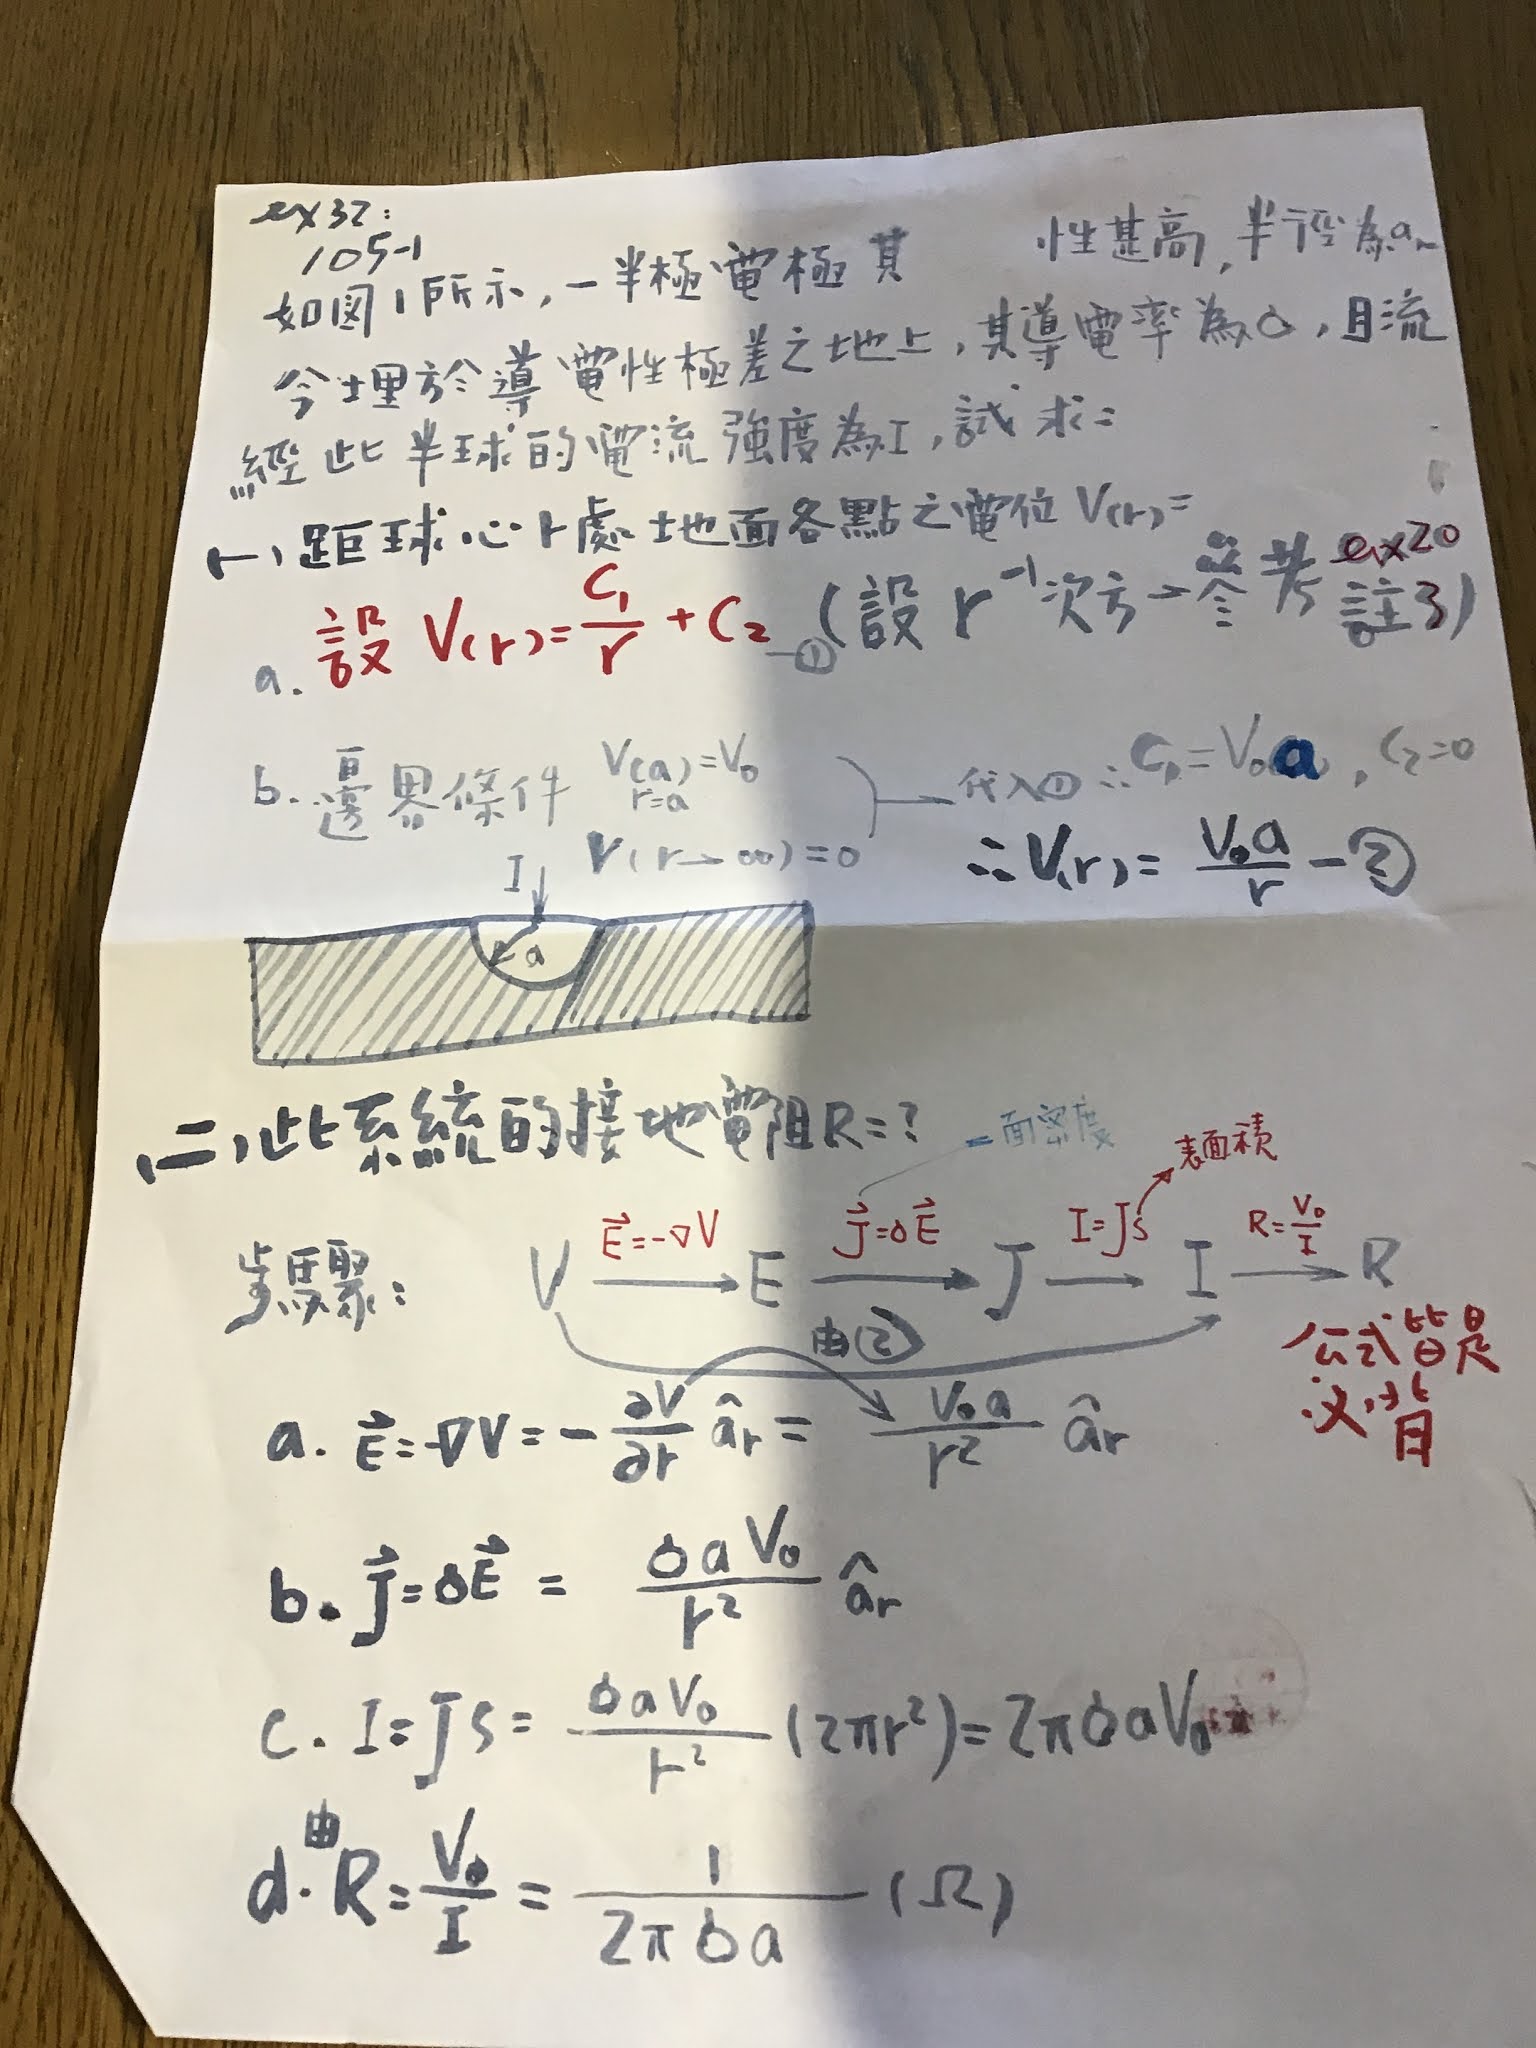 ex32:
105-1
如図1所示,一半極電極其 性甚高,半徑為a。
今埋於導電性極差之地上,其導電率為σ,且流
經此半球的電流強度為I,試求=
(一)距球心r處地面各點之電位V(r)=
a. 設 V(r)=C₁/r + C₂ —① (設 r⁻¹次方→參考 ex20 註3)
b. 邊界條件 V(a)=V₀
r=a
V(r→∞)=0
代入① ∴C₁=V₀a, C₂=0
∴V(r)=V₀a/r —②
I
a
(二)此系統的接地電阻R=?
面密度
表面積
步驟: V →(E⃗=-∇V) E →(J⃗=σE⃗) J →(I=JS) I →(R=V₀/I) R
公式皆是
必背
由②
a. E⃗=-∇V=-∂V/∂r âr= V₀a/r² âr
b. J⃗=σE⃗ = σaV₀/r² âr
c. I=JS= σaV₀/r² (2πr²)=2πσaV₀
d. 由R=V₀/I = 1/2πσa (Ω)